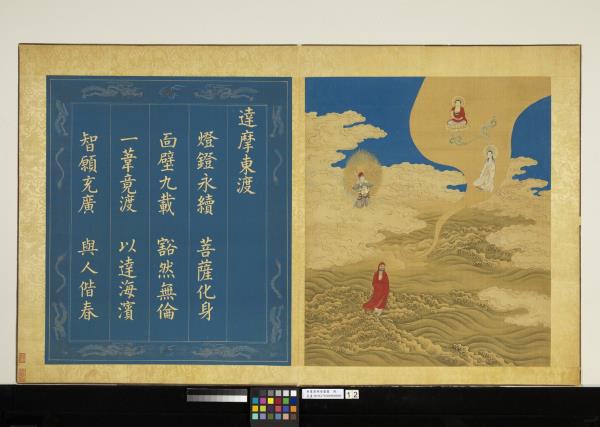 達摩東渡
燈鐙永續 菩薩化身
面壁九載 豁然無倫
一葦竟渡 以達海濱
智願充廣 與人偕春
12